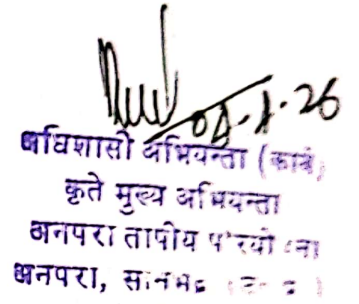 04-1-26
अधिशासी अभियन्ता (कार्य)
कृते मुख्य अभियन्ता
अनपरा तापीय परियोजना
अनपरा, सोनभद्र